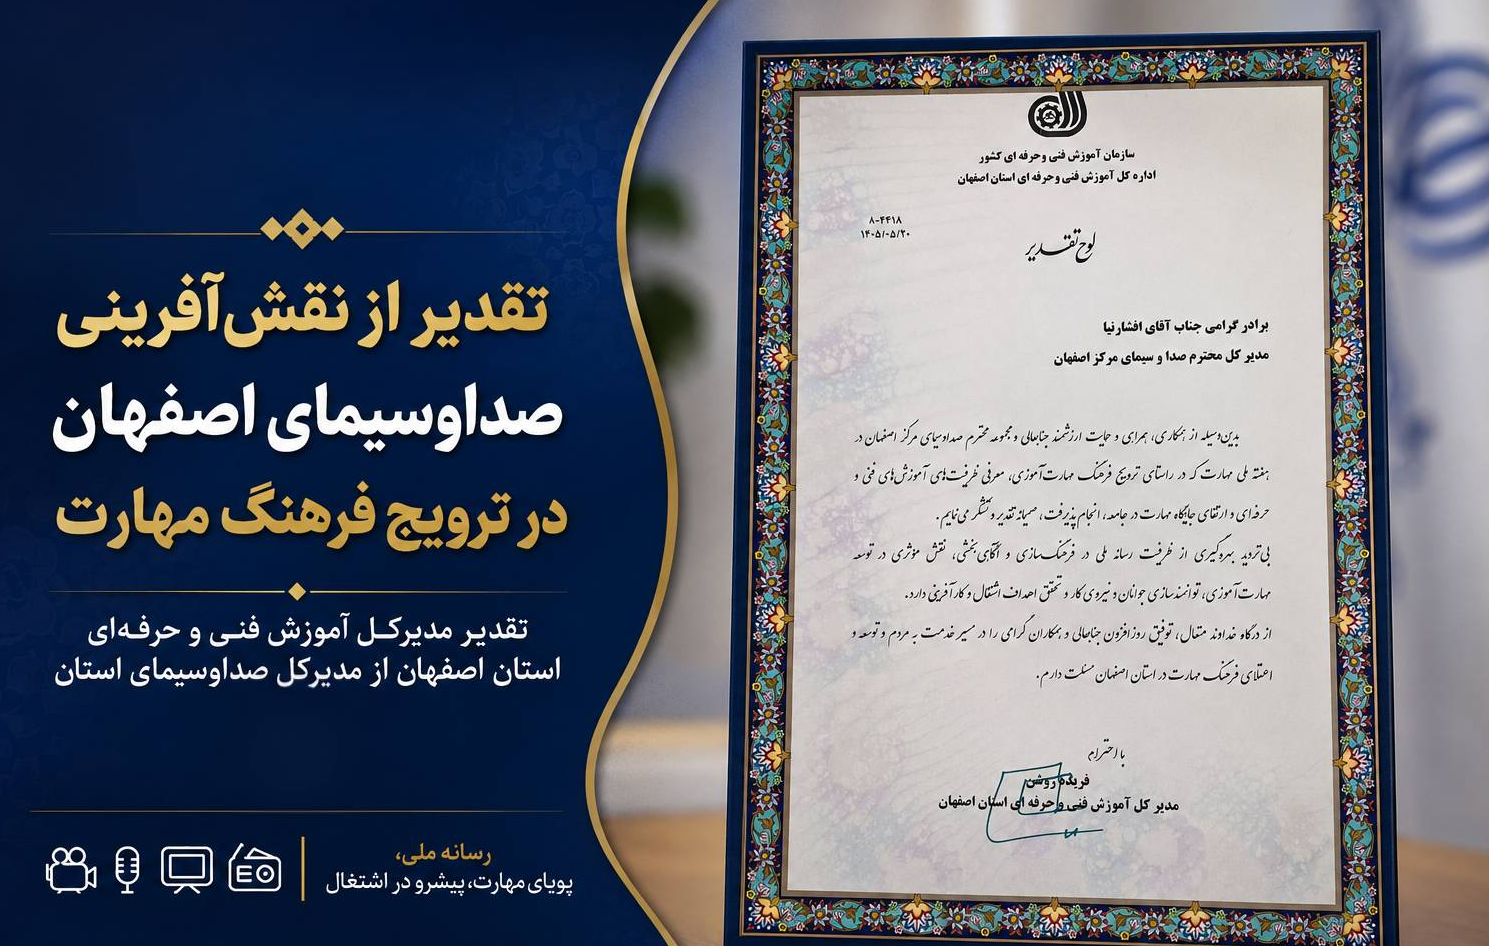 تقدیر از نقش‌آفرینی
صداوسیمای اصفهان
در ترویج فرهنگ مهارت
تقدیر مدیرکل آموزش فنی و حرفه‌ای
استان اصفهان از مدیرکل صداوسیمای استان
رسانه ملی،
پویای مهارت، پیشرو در اشتغال
سازمان آموزش فنی و حرفه ای کشور
اداره کل آموزش فنی و حرفه ای استان اصفهان
۸-۴۴۱۸
۱۴۰۵/۰۵/۲۰
لوح تقدیر
برادر گرامی جناب آقای افشارنیا
مدیر کل محترم صدا و سیمای مرکز اصفهان
بدین‌وسیله از همکاری، همراهی و حمایت ارزشمند جنابعالی و مجموعه محترم صداوسیمای مرکز اصفهان در
هفته ملی مهارت که در راستای ترویج فرهنگ مهارت‌آموزی، معرفی ظرفیت‌های آموزش‌های فنی و
حرفه‌ای و ارتقای جایگاه مهارت در جامعه، انجام پذیرفت، صمیمانه تقدیر و تشکر می‌نمایم.
بی‌تردید بهره‌گیری از ظرفیت رسانه ملی در فرهنگ‌سازی و آگاهی‌بخشی، نقش مؤثری در توسعه
مهارت‌آموزی، توانمندسازی جوانان و نیروی کار و تحقق اهداف اشتغال و کارآفرینی دارد.
از درگاه خداوند متعال، توفیق روزافزون جنابعالی و همکاران گرامی را در مسیر خدمت به مردم و توسعه و
اعتلای فرهنگ مهارت در استان اصفهان مسئلت دارم.
با احترام
فریده روشن
مدیر کل آموزش فنی و حرفه ای استان اصفهان